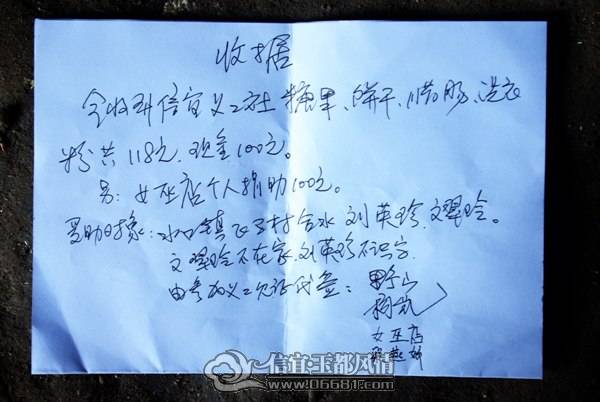 收据
今收到信宜义工社糖果、饼干、腊肠、洗衣
粉共118元、现金100元。
另:女巫店个人捐助100元。
受助对象:水口镇 村合水 刘英珍、文翠玲。
文翠玲不在家,刘英珍不识字.
由参加义工 代签:野山
女巫店
信宜玉都风情
www.06681.com